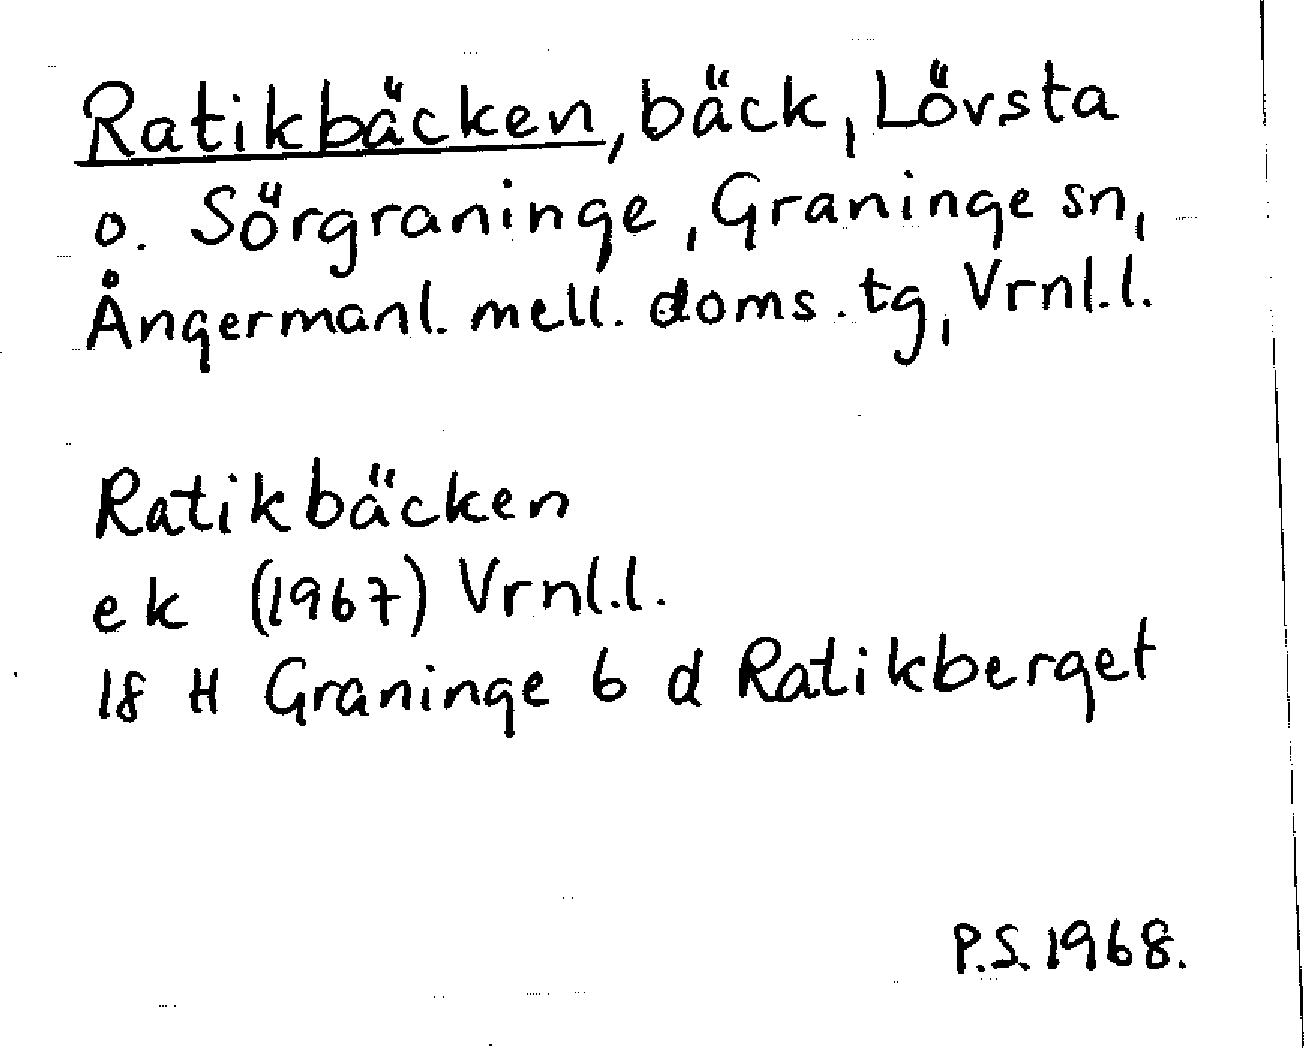 Ratikbäcken, bäck, Lövsta
o. Sörgraninge, Graninge sn,
Ångermanl. mell. doms. tg, Vrnl.l.
Ratikbäcken
ek (1967) Vrnl.l.
18 H Graninge 6 d Ratikberget
P.S. 1968.